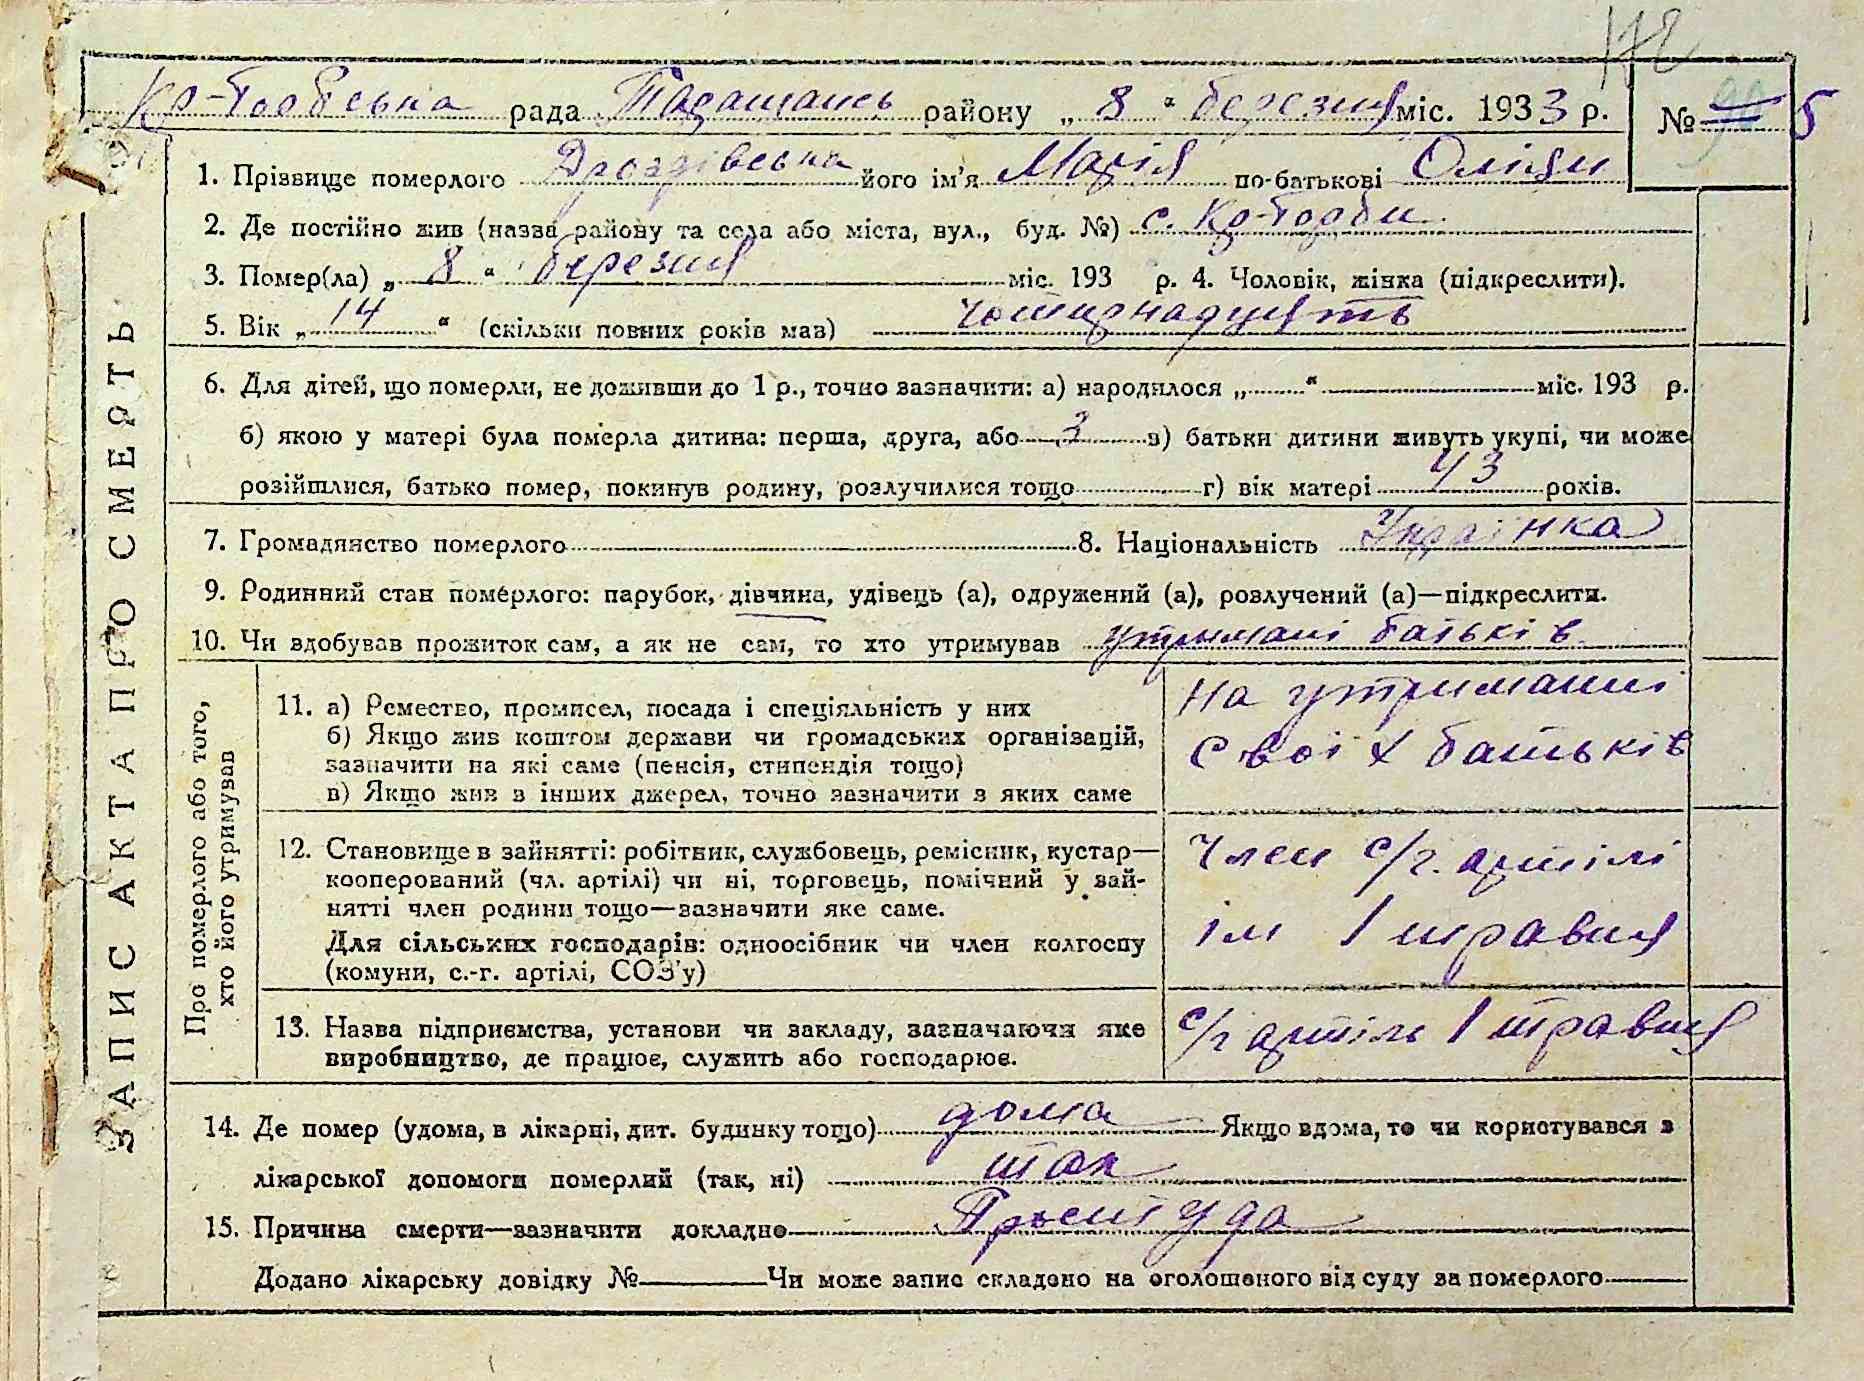 172
Кр-Горбська рада Таращанськ району „ 8 “ березня міс. 1933 р. № 5
1. Прізвище померлого Дроздівська його ім'я Марія по-батькові
2. Де постійно жив (назва району та села або міста, вул., буд. №) с. Кр-Горби
3. Помер(ла) „ 8 “ березня міс. 193 р. 4. Чоловік, жінка (підкреслити).
5. Вік „ 14 “ (скільки повних років мав) чотирнадцять
6. Для дітей, що померли, не доживши до 1 р., точно зазначити: а) народилося „ “ міс. 193 р.
б) якою у матері була померла дитина: перша, друга, або 3 в) батьки дитини живуть укупі, чи може
розійшлися, батько помер, покинув родину, розлучилися тощо г) вік матері 43 років.
7. Громадянство померлого 8. Національність Українка
9. Родинний стан померлого: парубок, дівчина, удівець (а), одружений (а), розлучений (а)—підкреслити.
10. Чи вдобував прожиток сам, а як не сам, то хто утримував утримані батьків
ЗАПИС АКТА ПРО СМЕРТЬ
Про померлого або того,
хто його утримував
11. а) Ремество, промисел, посада і спеціяльність у них
б) Якщо жив коштом держави чи громадських організацій,
зазначити на які саме (пенсія, стипендія тощо)
в) Якщо жив з інших джерел, точно зазначити з яких саме
на утриманні
своїх батьків
12. Становище в зайнятті: робітник, службовець, ремісник, кустар—
кооперований (чл. артілі) чи ні, торговець, помічний у зай-
нятті член родини тощо—зазначити яке саме.
Для сільських господарів: одноосібник чи член колгоспу
(комуни, с.-г. артілі, СОЗ'у)
Член с/г. артілі
ім 1 травня
13. Назва підприємства, установи чи закладу, зазначаючи яке
виробництво, де працює, служить або господарює.
с/г артіль 1 травня
14. Де помер (удома, в лікарні, дит. будинку тощо) дома Якщо вдома, то чи користувався з
лікарської допомоги померлий (так, ні) так
15. Причина смерти—зазначити докладно Простуда
Додано лікарську довідку № Чи може запис складено на оголошеного від суду за померлого